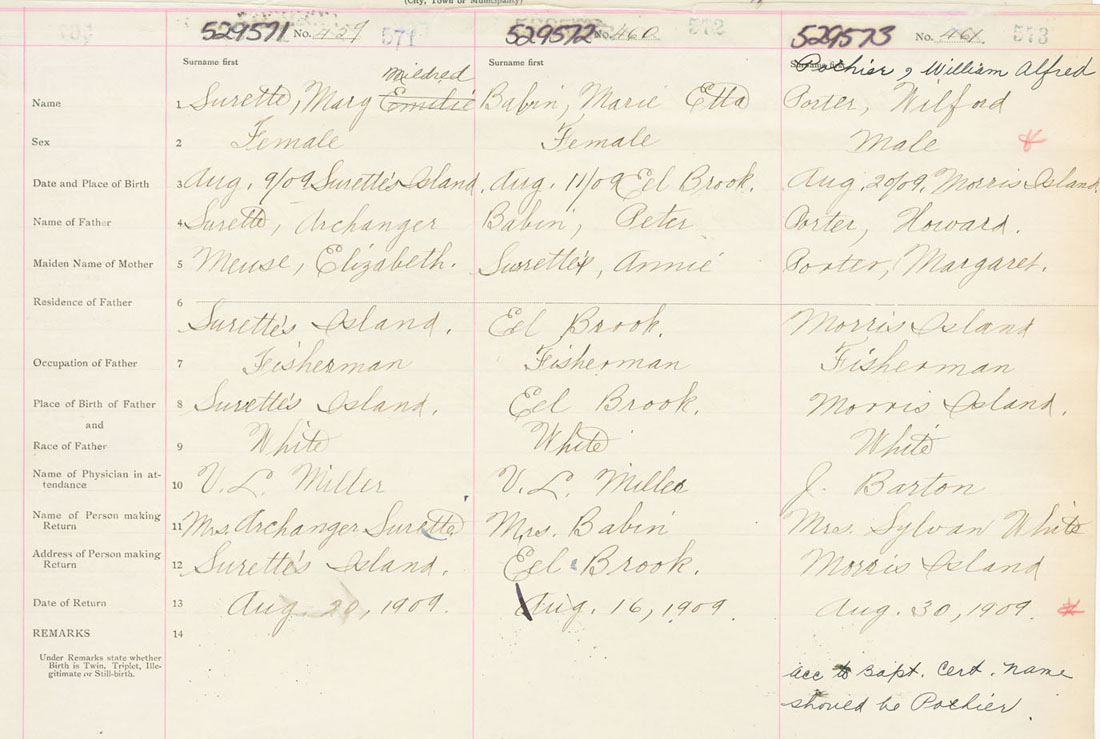 (City, Town or Municipality)
529571 No. 459 571
529572 No. 460 572
529573 No. 461 573
Surname first
Surname first
Surname first
Pothier, William Alfred
Mildred
Name 1 Surette, Mary Emilie Babin, Marie Etta Porter, Wilford
Sex 2 Female Female Male
Date and Place of Birth 3 Aug. 9/09 Surette's Island. Aug. 11/09 Eel Brook. Aug. 20/09. Morris Island.
Name of Father 4 Surette, Archanger Babin, Peter Porter, Howard.
Maiden Name of Mother 5 Meuse, Elizabeth. Surette, Annie Porter, Margaret.
Residence of Father 6
Surette's Island. Eel Brook. Morris Island
Occupation of Father 7 Fisherman Fisherman Fisherman
Place of Birth of Father 8 Surette's Island. Eel Brook. Morris Island.
and
Race of Father 9 White White White
Name of Physician in at-
tendance 10 V. L. Miller V. L. Miller J. Barton
Name of Person making
Return 11 Mrs Archanger Surette Mrs. Babin Mrs. Sylvan White
Address of Person making
Return 12 Surette's Island. Eel Brook. Morris Island
Date of Return 13 Aug. 20, 1909. Aug. 16, 1909 Aug. 30, 1909.
REMARKS 14
Under Remarks state whether
Birth is Twin, Triplet, Ille-
gitimate or Still-birth.
acc to Bapt. Cert. name
should be Pothier.